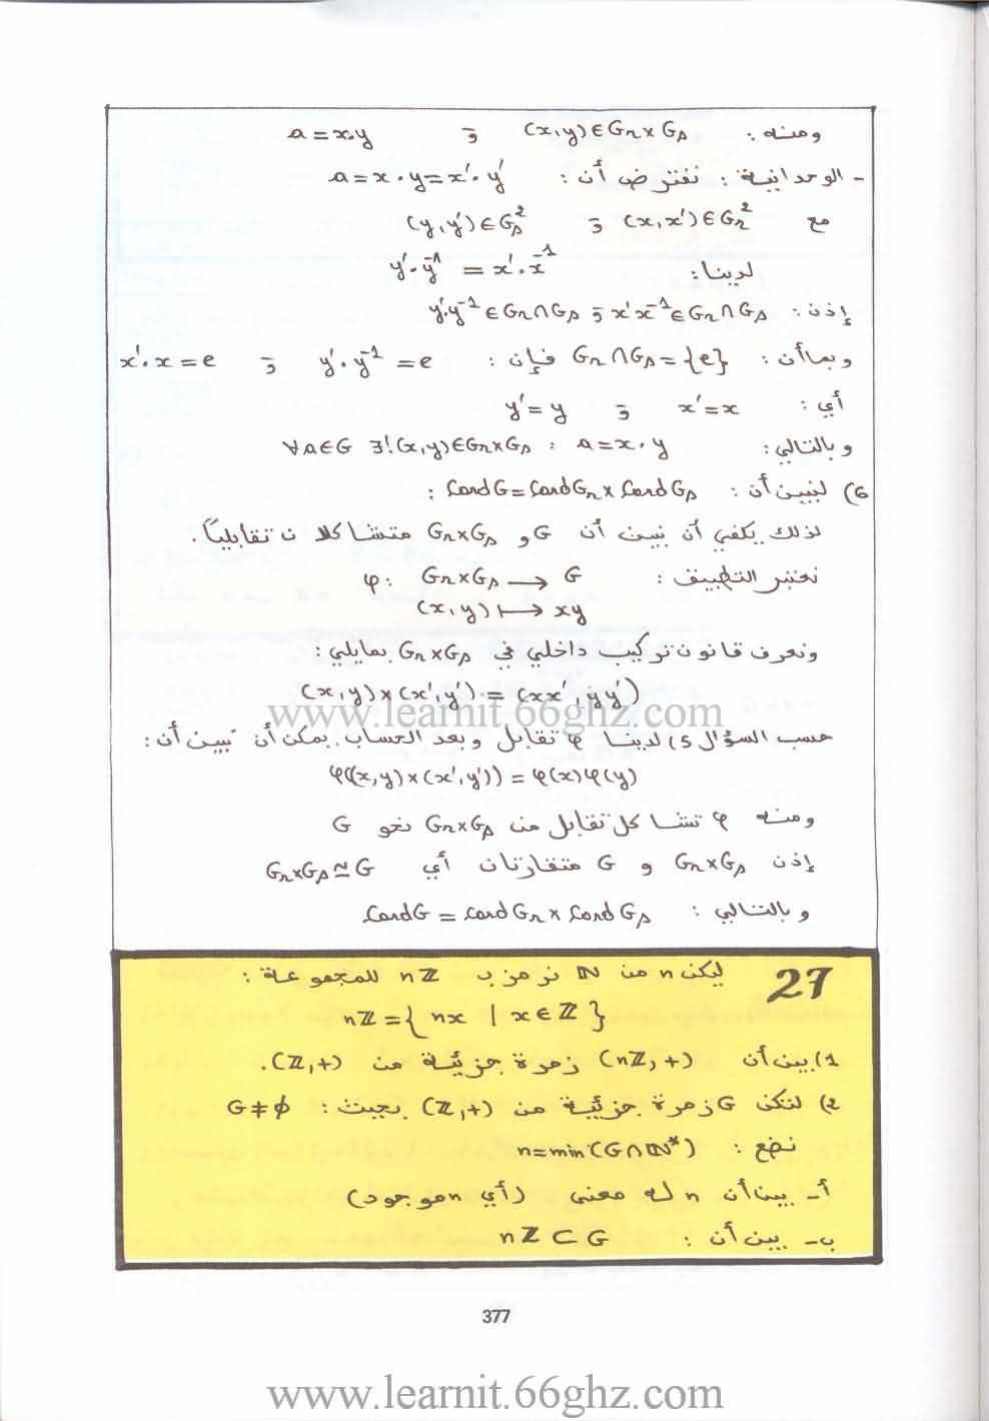 ومنه : (x,y)∈Gr×Gs و a=x.y
- الوحدانية : نفترض أن : a=x.y=x'.y'
مع (x,x')∈Gr² و (y,y')∈Gs²
لدينا: y'.y⁻¹ = x'.x⁻¹
إذن : x'x⁻¹∈Gr∩Gs و y'y⁻¹∈Gr∩Gs
وبما أن : Gr∩Gs={e} فإن : y'.y⁻¹=e و x'.x=e
أي : x'=x و y'=y
وبالتالي: ∀a∈G ∃!(x,y)∈Gr×Gs : a=x.y
6) لنبين أن : CardG=CardGr×CardGs :
لذلك يكفي أن نبين أن G و Gr×Gs متشاكلان تقابليا.
نعتبر التطبيق : φ: Gr×Gs → G
(x,y) ↦ xy
ونعرف قانون تركيب داخلي في Gr×Gs بمايلي:
(x,y)×(x',y') = (xx',yy')
www.learnit.66ghz.com
حسب السؤال 5) لدينا φ تقابل وبعد الحساب يمكن أن نبين أن:
φ((x,y)×(x',y')) = φ(x)φ(y)
ومنه φ تشاكل تقابل من Gr×Gs نحو G
إذن Gr×Gs و G متقارنان أي Gr×Gs≃G
وبالتالي : CardG = CardGr×CardGs
27 ليكن n من ℕ نرمز ب nℤ للمجموعة :
nℤ={ nx | x∈ℤ }
1) بين أن (nℤ,+) زمرة جزئية من (ℤ,+).
2) لتكن G زمرة جزئية من (ℤ,+) بحيث : G≠ϕ
نضع : n=min(G∩ℕ*)
أ- بين أن n له معنى (أي n موجود)
ب- بين أن : nℤ⊂G
377
www.learnit.66ghz.com